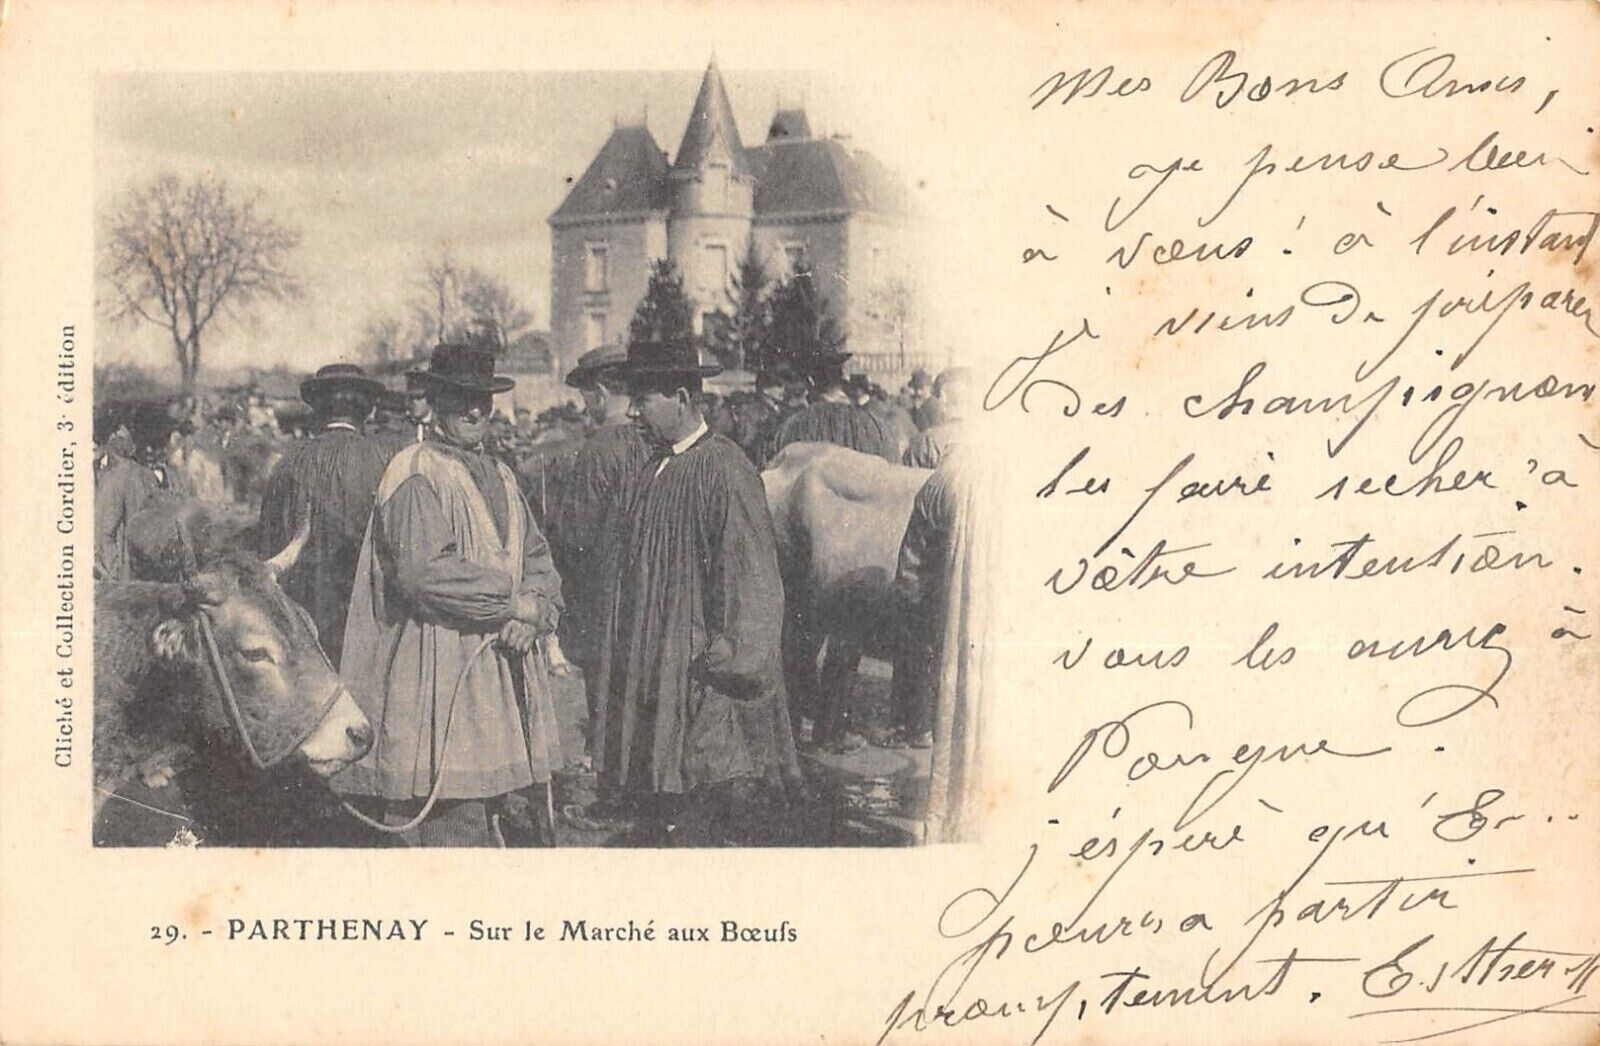 Mes Bons Amis,
Je pense bien
à vous ! à l'instant
je viens de préparer
des champignons
les faire secher à
vôtre intention.
vous les aurez à
Pâques.
j'éspère qu'E...
pourra partir
promptement. Esther M
Cliché et Collection Cordier, 3e édition
29. - PARTHENAY - Sur le Marché aux Bœufs